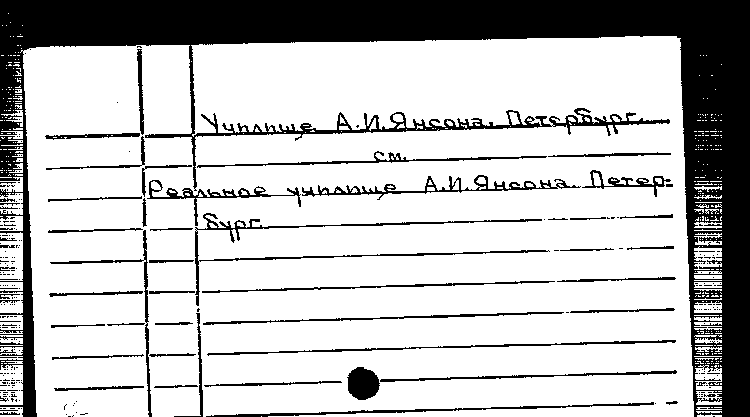 Училище А.И.Янсона. Петербург.
см.
Реальное училище А.И.Янсона. Петер-
бург.